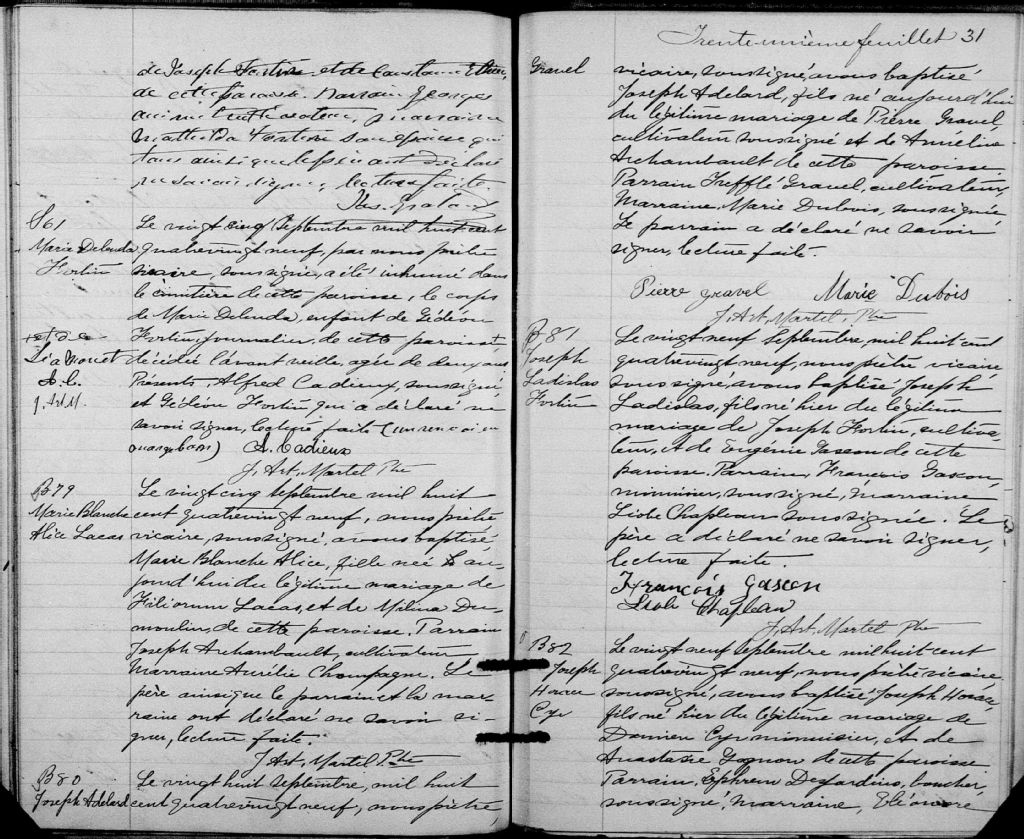 de Joseph Fortin et de
de cette paroisse. Parrain Georges
marraine
Fortin son épouse qui
tous ainsi que le père ont déclaré
ne savoir signer, lecture faite.
S61
Marie Delenda
Fortin
Le vingt cinq Septembre mil huit cent
quatrevingt neuf, par nous prêtre
vicaire, soussigné, a été inhumé dans
le cimetière de cette paroisse, le corps
de Marie Delenda, enfant de Gédéon
Fortin, journalier, de cette paroisse,
décédée l'avant veille, agée de deux ans
Présents Alfred Cadieux, soussigné
et Gédéon Fortin qui a déclaré ne
savoir signer, lecture faite (un renvoi en
marge bon) A. Cadieux
J. Art. Martel Ptre
B79
Marie Blanche
Alice Lacas
Le vingt cinq Septembre mil huit
cent quatrevingt neuf, nous prêtre
vicaire, soussigné, avons baptisé,
Marie Blanche Alice, fille née au-
jourd'hui du légitime mariage de
Filiorum Lacas, et de Mélina Du-
moulin, de cette paroisse, Parrain
Joseph Archambault, cultivateur
Marraine Aurélie Champagne. Le
père ainsi que le parrain et la mar-
raine ont déclaré ne savoir si-
gner, lecture faite.
J. Art. Martel Ptre
B80
Joseph Adelard
Le vingt huit septembre, mil huit
cent quatrevingt neuf, nous prêtre,
Trente-unième feuillet 31
Gravel
vicaire, soussigné, avons baptisé
Joseph Adelard, fils né aujourd'hui
du légitime mariage de Pierre Gravel,
cultivateur soussigné et de Améline
Archambault de cette paroisse
Parrain Trefflé Gravel, cultivateur,
Marraine, Marie Dubois, soussignée
Le parrain a déclaré ne savoir
signer, lecture faite.
Pierre gravel Marie Dubois
J. Art. Martel, Ptre
B81
Joseph
Ladislas
Fortin
Le vingt neuf Septembre, mil huit cent
quatrevingt neuf, nous prêtre vicaire
soussigné, avons baptisé Joseph
Ladislas, fils né hier du légitime
mariage de Joseph Fortin, cultiva-
teur, et de Eugénie Gascon de cette
paroisse. Parrain, François Gascon,
menuisier, soussigné, marraine
Liobe Chapleau soussignée. Le
père a déclaré ne savoir signer,
lecture faite.
François Gascon
Liobe Chapleau
J. Art. Martel Ptre
B82
Joseph
Horace
Cyr
Le vingt neuf Septembre mil huit cent
quatrevingt neuf, nous prêtre vicaire
soussigné, avons baptisé Joseph Horace
fils né hier du légitime mariage de
Damien Cyr menuisier, et de
Anastasie Gagnon de cette paroisse
Parrain, Ephrem Desjardins, boucher,
soussigné, Marraine, Eléonore